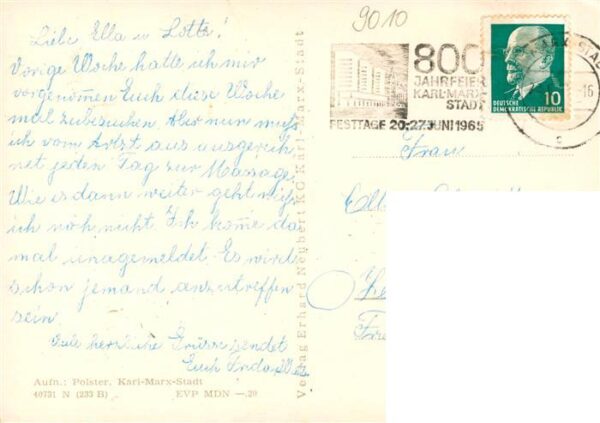 9010
Liebe Ella u Lotte!
Vorige Woche hatte ich mir
vorgenommen Euch diese Woche
mal zubesuchen. Aber nun muß
ich vom Artzt aus ausgerech
net jeden Tag zur Massage.
Wie es dann weiter geht weiß
ich noch nicht. Ich kome da
mal unagemeldet. Es wird
schon jemand anzutreffen
sein.
herzliche Grüsse sendet
Euch
Aufn.: Polster, Karl-Marx-Stadt
40731 N (233 B) EVP MDN —.20
Verlag Erhard Neubert KG Karl-Marx-Stadt
800
JAHRFEIER
KARL-MARX-
STADT
FESTTAGE 20.-27. JUNI 1965
DEUTSCHE
DEMOKRATISCHE REPUBLIK
10
-16
c
Frau